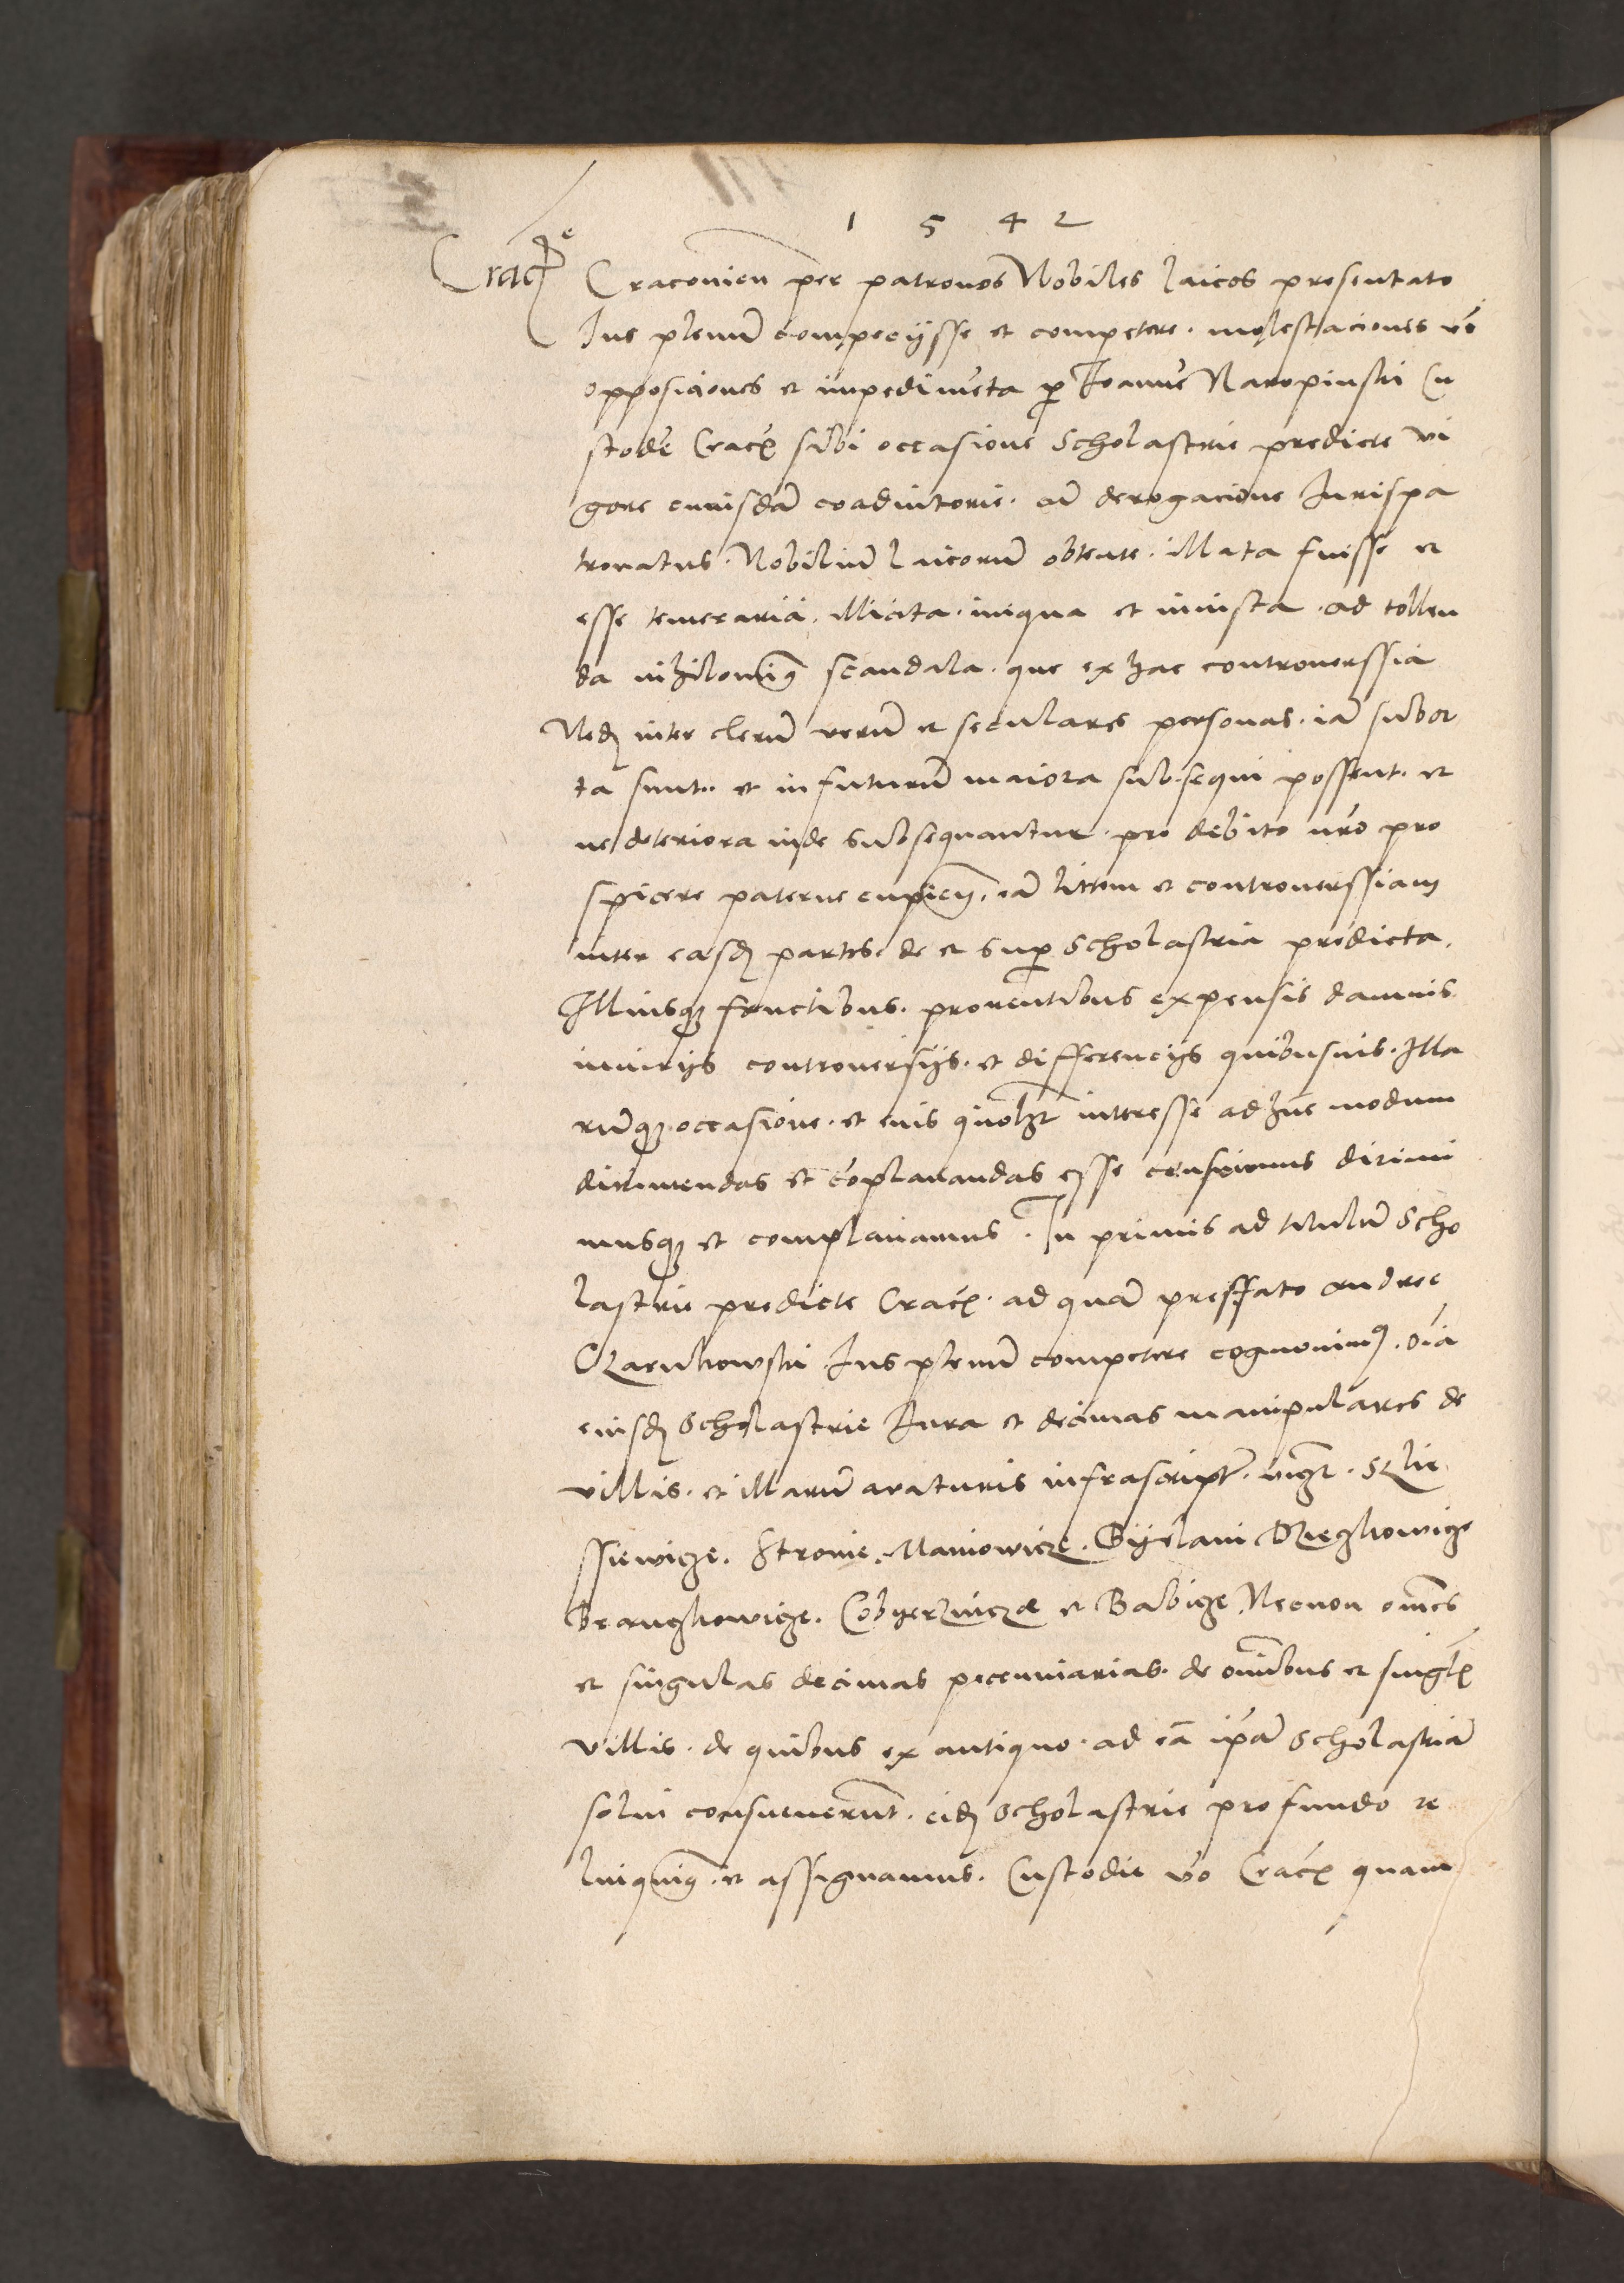 1 5 4 2
Craćę
Craconien per patronos Nobiles laicos presentato
Ius plenū compeciisse et competere. molestaciones vō
opposiciones et impedimēta p Ioannē Naropinski Cu
stodē Crać sibi occasione Scholastrie predicte vi
gore cuiusdā coadiutorie. cū derogacione Iurispa
tronatus. Nobiliū laicorū obtente. illata fuisse et
esse temeraria. illicita. iniqua et iniusta. ad tollen
da nihilominꝰ scandala. que ex hac controverssia
Nedū inter clerū verū et seculares personas. iā subor
ta sunt. et in futurū maiora subsequi possent. et
ne deteriora inde subsequantur. pro debito nrō pro
spicere paterne cupien̄. eā littem et controverssiam
inter easdē partes de et sup scholastria predicta.
Illiusqꝫ fructibus. proventibus expensis damnis
iniuriis controversiis. et differenciis quibusuis. Illa
rūqꝫ occasione. et cuis quōlꝫ interesse ad hūc modum
dirimendas et cōplanandas esse censuimus dirimi
musqꝫ et complanamus. In primis ad titulū Scho
lastrie predicte Crać. ad quā preffato Andree
Czarnkowski Ius plenū competere cognovimꝰ. oīa
eiusdē Scholastrie Iura et decimas manipulares de
villis. et illarū araturis infrascript. videlꝫ. Szlie
ssiewicze. Stronie. Maniowicze. Gyelani Dzieghowicze
Beranghowicze. Cobyerzinczæ et Babicze. Necnon omēs
et singulas decimas pecuniarias. de omībus et singlis
villis. de quibus ex antiquo. ad eā ipā Scholastriā
solui consueuerūt. eidē Scholastrie pro fundo re
linquimꝰ et assignamus. Custodie vō Crać quam